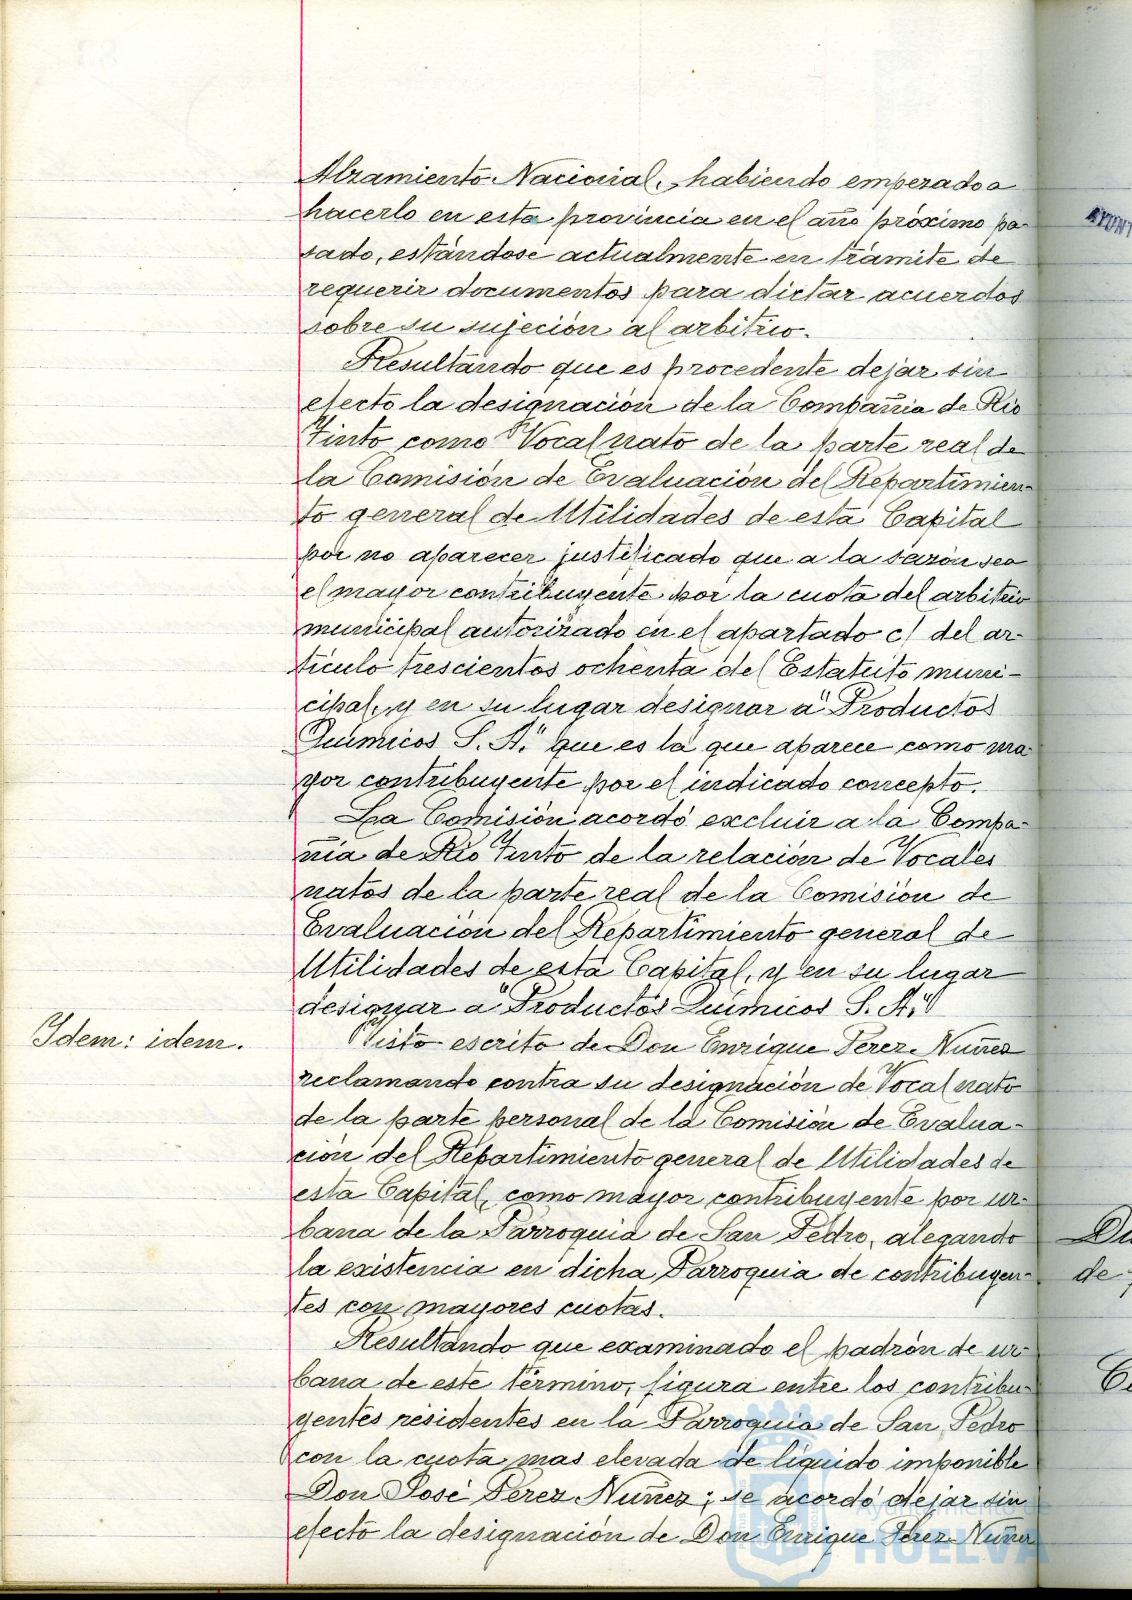 Alzamiento Nacional, habiendo empezado a
hacerlo en esta provincia en el año próximo pa-
sado, estándose actualmente en trámite de
requerir documentos para dictar acuerdos
sobre su sujeción al arbitrio.
Resultando que es procedente dejar sin
efecto la designación de la Compañia de Rio
Tinto como Vocal nato de la parte real de
la Comisión de Evaluación del Repartimien-
to general de Utilidades de esta Capital
por no aparecer justificado que a la sazón sea
el mayor contribuyente por la cuota del arbitrio
municipal autorizado en el apartado c) del ar-
tículo trescientos ochenta del Estatuto muni-
cipal, y en su lugar designar a "Productos
Químicos S. A." que es la que aparece como ma-
yor contribuyente por el indicado concepto.
La Comisión acordó excluir a la Compa-
ñia de Rio Tinto de la relación de Vocales
natos de la parte real de la Comisión de
Evaluación del Repartimiento general de
Utilidades de esta Capital, y en su lugar
designar a "Productos Químicos S. A."
Idem: idem.
Visto escrito de Don Enrique Perez Nuñez
reclamando contra su designación de Vocal nato
de la parte personal de la Comisión de Evalua-
ción del Repartimiento general de Utilidades de
esta Capital, como mayor contribuyente por ur-
bana de la Parroquia de San Pedro, alegando
la existencia en dicha Parroquia de contribuyen-
tes con mayores cuotas.
Resultando que examinado el padrón de ur-
bana de este término, figura entre los contribu-
yentes residentes en la Parroquia de San Pedro
con la cuota mas elevada de líquido imponible
Don José Perez Nuñez; se acordó dejar sin
efecto la designación de Don Enrique Perez Nuñez
Ayuntamiento de
HUELVA
AYUNT
de